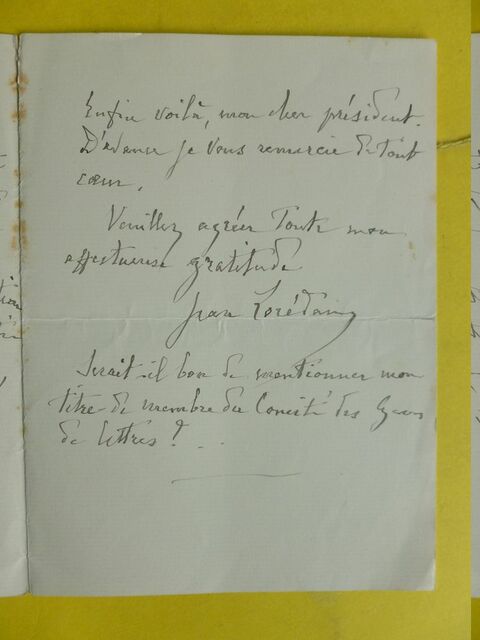 Enfin voilà, mon cher président.
D'avance je vous remercie de tout
cœur.
Veuillez agréer toute mon
affectueuse gratitude
Jean Lorédan
Serait-il bon de mentionner mon
titre de membre du Comité des Gens
de lettres ? . .